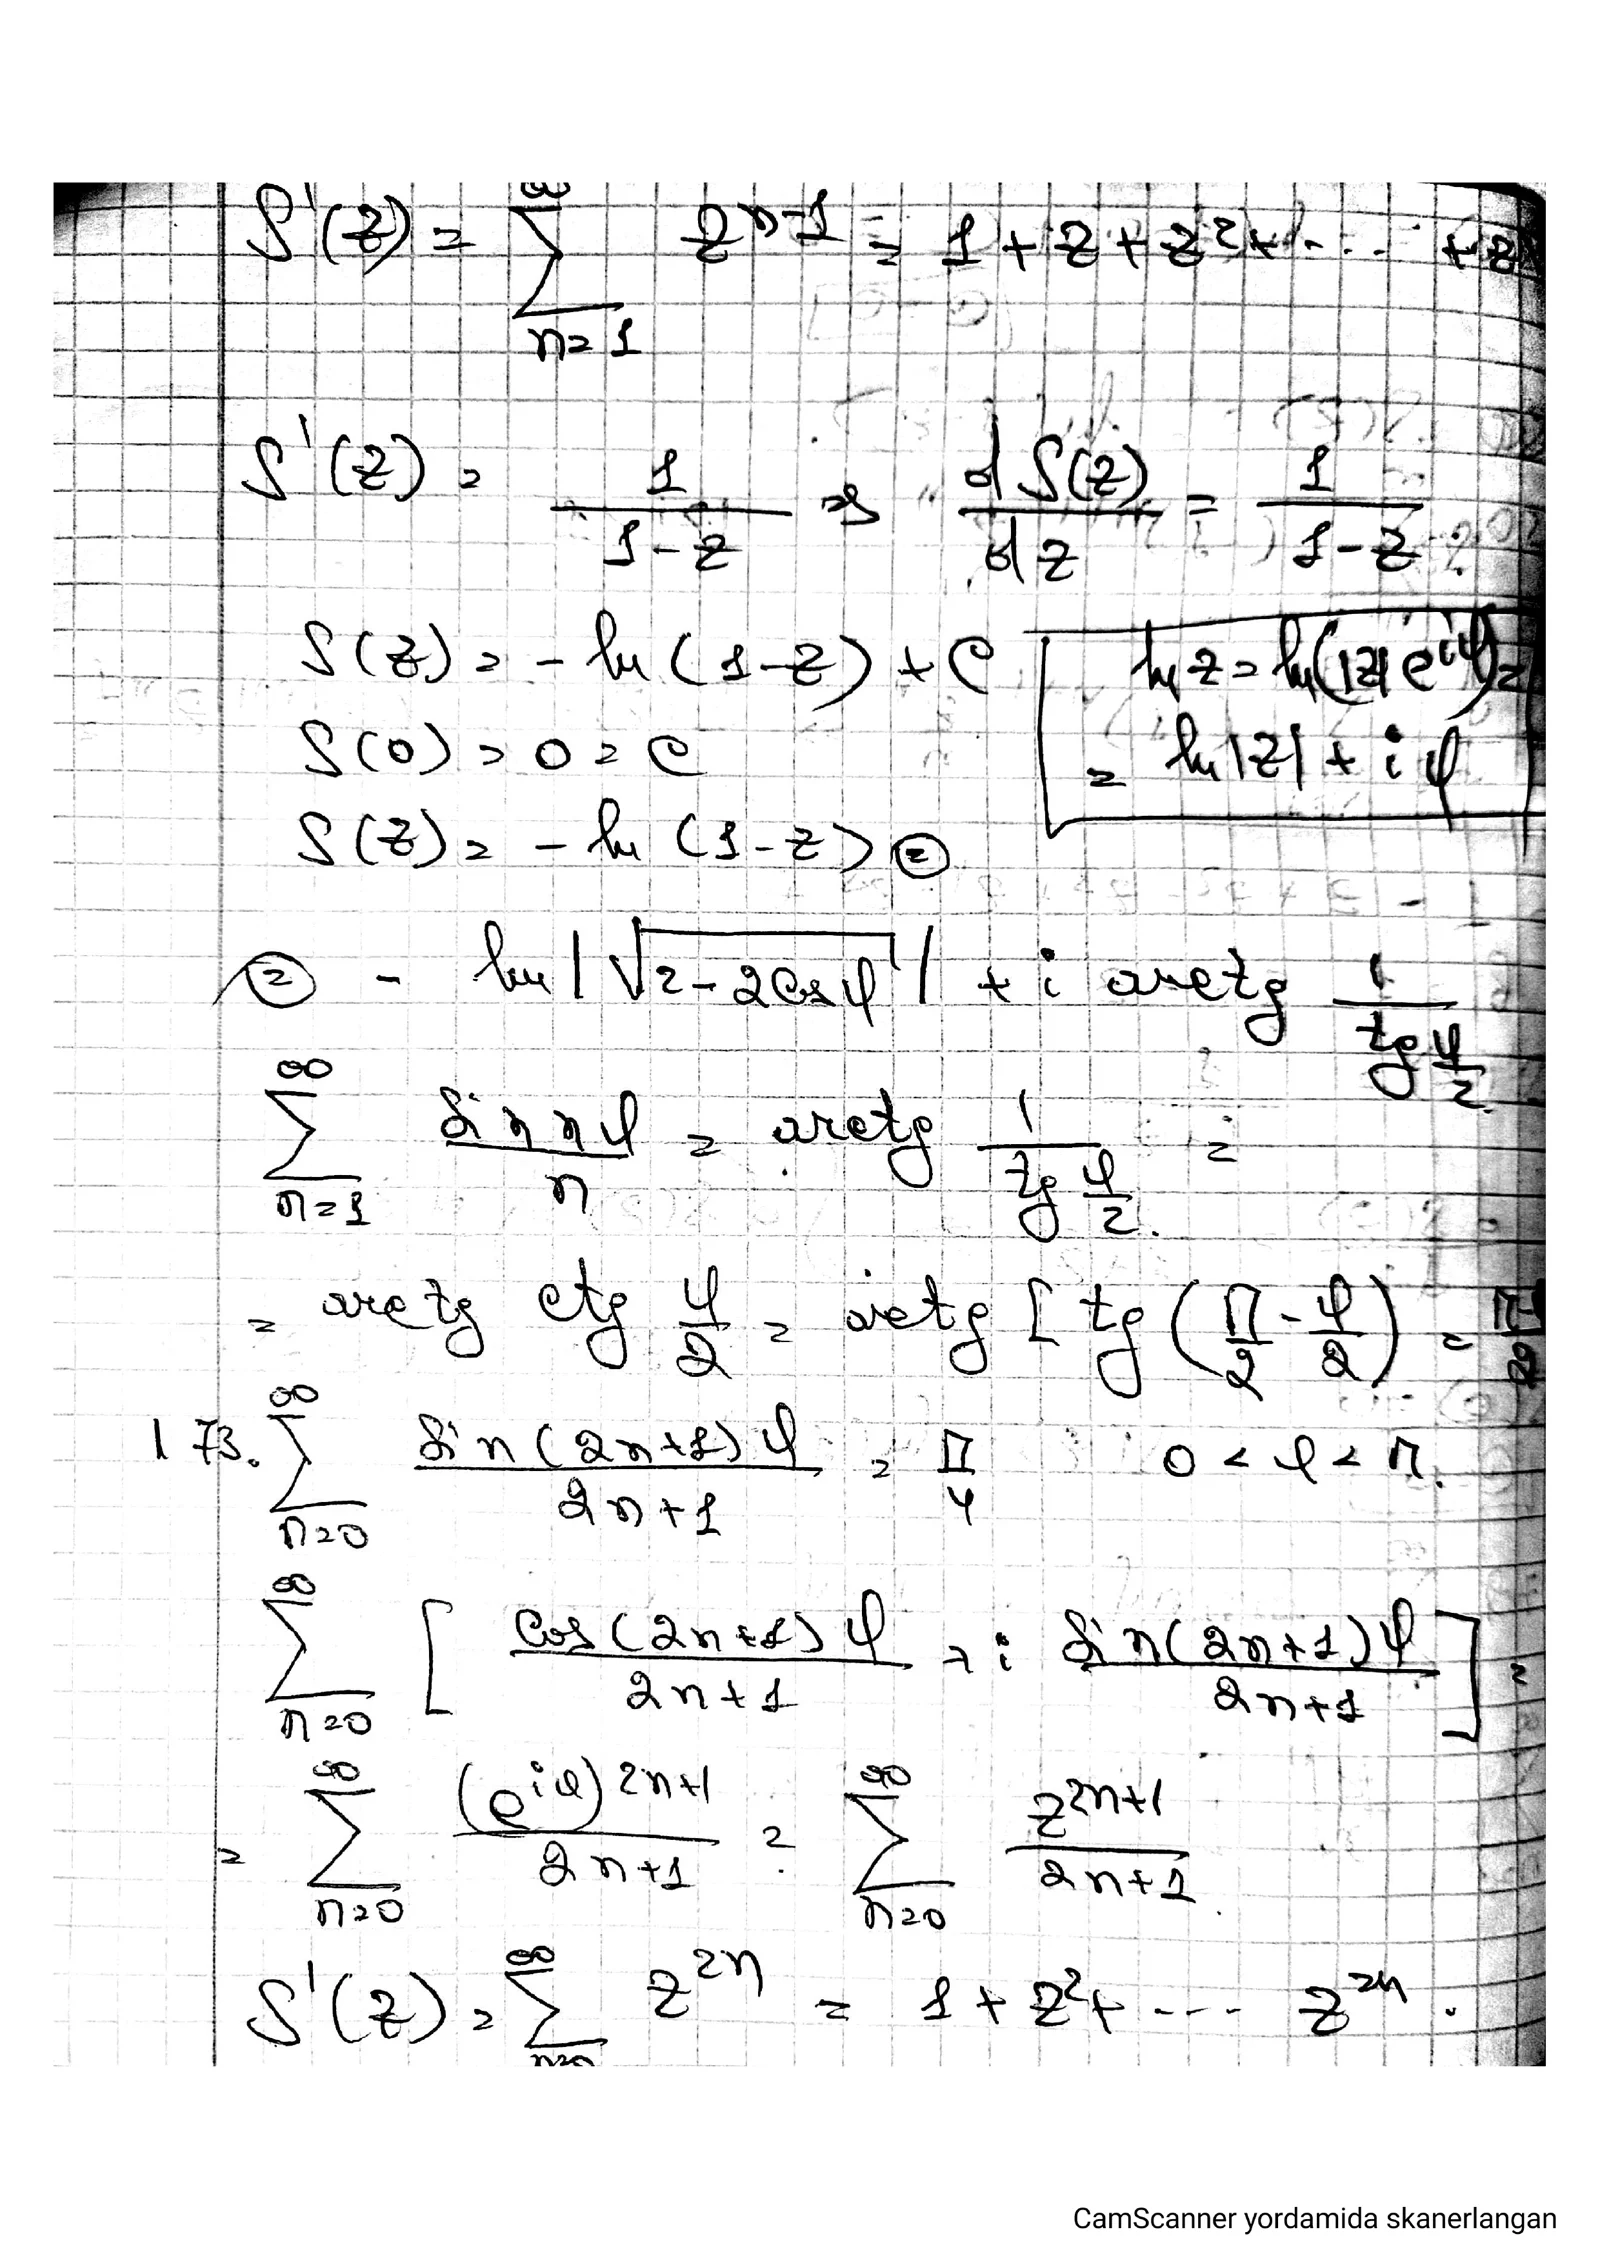 S'(z) = ∑_{n=1}^{∞} z^{n-1} = 1 + z + z² + ... + z
S'(z) = 1/(1-z) ⇒ dS(z)/dz = 1/(1-z)
S(z) = -ln(1-z) + C
ln z = ln(|z|e^{iφ}) =
S(0) = 0 = C
= ln|z| + iφ
S(z) = -ln(1-z) =
= - ln|√(2-2cosφ)| + i arctg 1/(tg φ/2)
∑_{n=1}^{∞} sin nφ/n = arctg 1/(tg φ/2) =
= arctg ctg φ/2 = arctg [tg(π/2 - φ/2) =
173. ∑_{n=0}^{∞} sin(2n+1)φ/(2n+1) = π/4 0 < φ < π.
∑_{n=0}^{∞} [cos(2n+1)φ/(2n+1) + i sin(2n+1)φ/(2n+1)] =
= ∑_{n=0}^{∞} (e^{iφ})^{2n+1}/(2n+1) = ∑_{n=0}^{∞} z^{2n+1}/(2n+1)
S'(z) = ∑_{n=0}^{∞} z^{2n} = 1 + z² + ... z^{2n}.
CamScanner yordamida skanerlangan